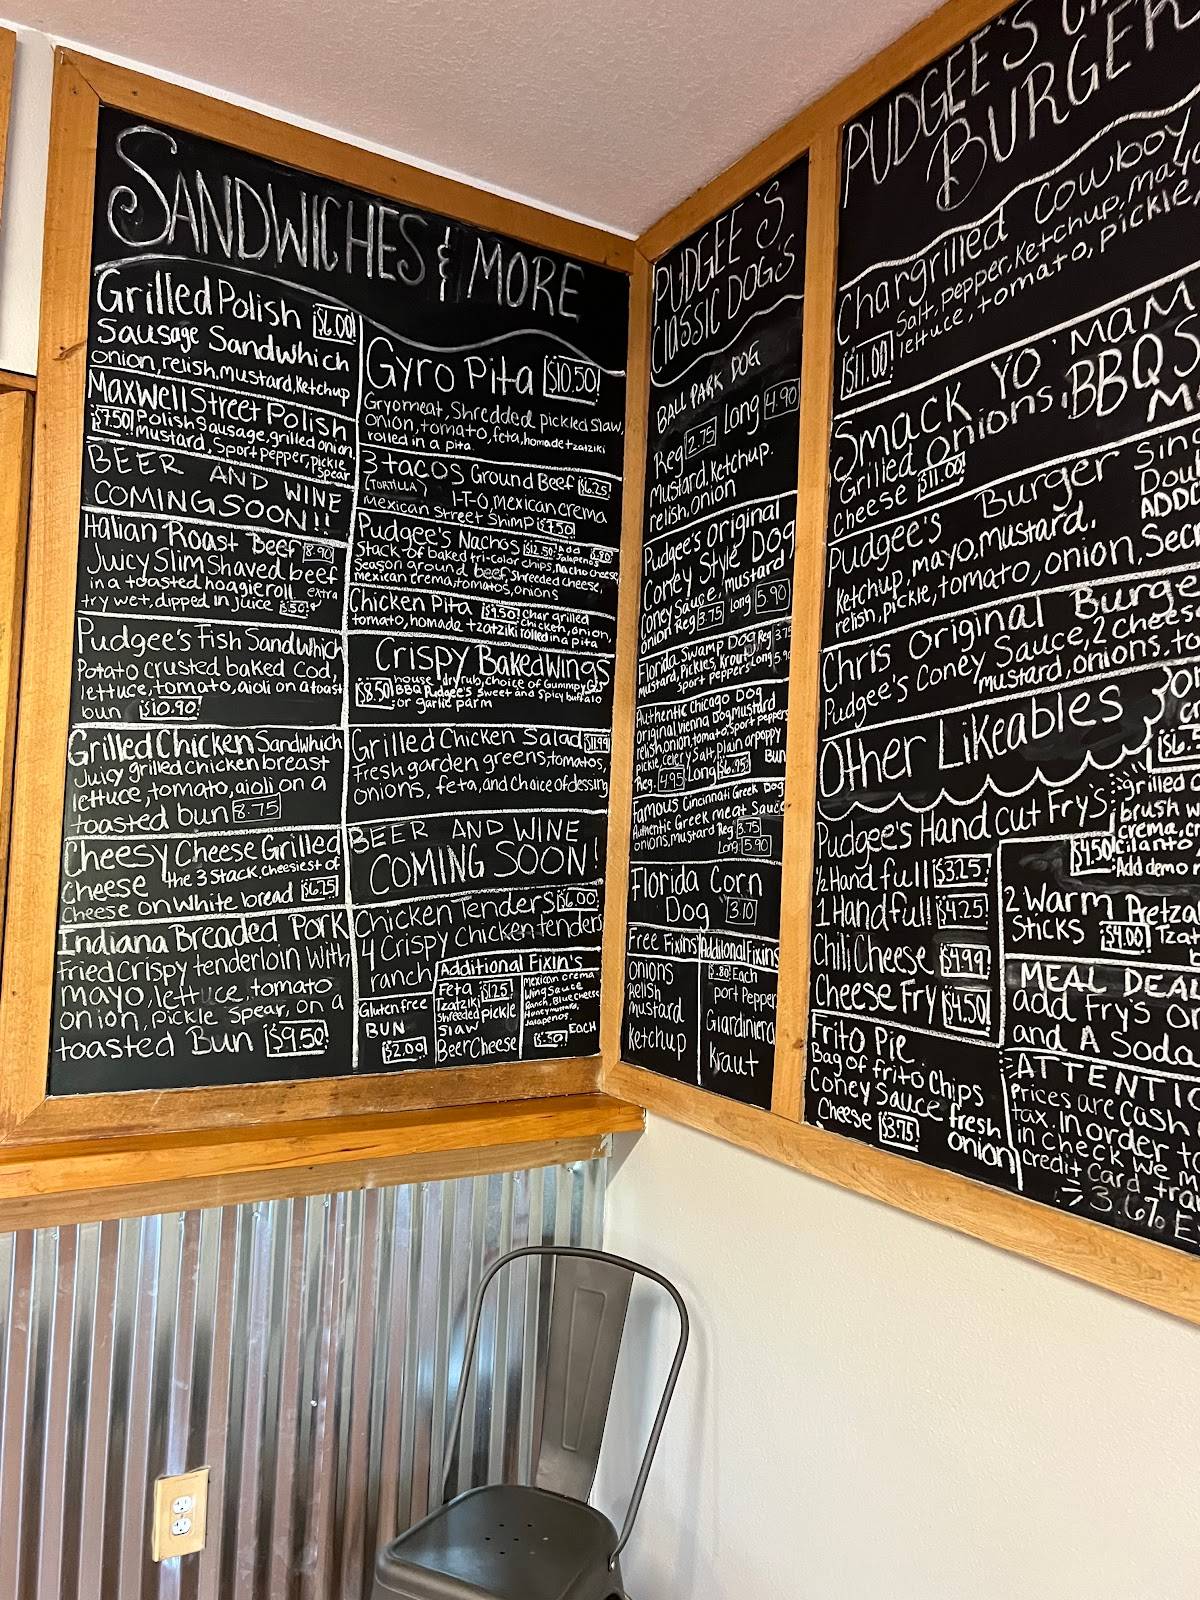 SANDWICHES & MORE
Grilled Polish $6.00
Sausage Sandwhich
onion, relish, mustard, Ketchup
Maxwell Street Polish
$7.50 Polish Sausage, grilled onion,
Mustard, Sport pepper, pickle
Spear
BEER AND WINE
COMING SOON!!
Italian Roast Beef 8.90
Juicy Slim Shaved beef
in a toasted hoagie roll. extra
try wet, dipped in juice $.50
Pudgee's Fish Sandwhich
Potato crusted baked Cod,
lettuce, tomato, aioli on a toast
bun $10.90
Grilled Chicken Sandwhich
Juicy grilled chicken breast
lettuce, tomato, aioli on a
toasted bun 8.75
Cheesy Cheese Grilled
Cheese the 3 stack, cheesiest of
Cheese on white bread $6.25
Indiana Breaded Pork
Fried Crispy tenderloin With
mayo, lettuce, tomato
onion, pickle spear, on a
toasted Bun $9.50
Gyro Pita $10.50
Gryomeat, Shredded pickled slaw,
onion, tomato, feta, homade tzatziki
rolled in a pita.
3 tacos Ground Beef $6.25
(TORTILLA) L-T-O, mexican crema
Mexican Street Shimp $7.50
Pudgee's Nachos $12.50 Add Jalapenos $.80
Stack of baked tri-color chips, Nacho cheese,
Season ground beef, shreeded cheese,
mexican crema, tomatos, onions
Chicken Pita $9.50 Char grilled
chicken, onion,
tomato, homade tzatziki rolled in a pita
Crispy Baked Wings
$8.50 house dry rub, choice of
BBQ Pudgee's Sweet and Spicy buffalo
or garlic parm
Grilled Chicken Salad $11.99
Fresh garden greens, tomatos,
onions, feta, and Choice of dessing
BEER AND WINE
COMING SOON!
Chicken Tenders $6.00
4 Crispy Chicken tenders
ranch
Gluten free
BUN
$2.00
Additional Fixin's
Feta $1.25
Tzatziki
Shreeded pickle
Slaw
Beer Cheese
Mexican crema
Wing Sauce
Ranch, Blue cheese
Honey mustard,
Jalapenos.
$.50 EACH
PUDGEE'S
CLASSIC DOG'S
BALL PARK DOG
Reg 2.75 Long 4.90
Mustard, Ketchup.
relish, onion
Pudgee's Original
Coney Style Dog
Coney Sauce, mustard
onion Reg 3.75 Long 5.90
Florida Swamp Dog Reg
mustard, Pickles, Kraut Long
sport peppers
Authentic Chicago Dog
original Vienna Dog Mustard
relish, onion, tomato, sport peppers
pickle, celery Salt, plain or poppy
Bun
Reg. 4.95 Long $6.95
Famous Cincinnati Greek Dog
Authentic Greek meat Sauce
onions, mustard Reg 3.75
Long 5.90
Florida Corn
Dog 3.10
Free Fixins
onions
Relish
mustard
Ketchup
Additional Fixins
$.80 Each
port Pepper
Giardiniera
Kraut
PUDGEE'S
BURGER
Chargrilled Cowboy
Salt, pepper, Ketchup, mayo
lettuce, tomato, pickle,
$11.00
Smack Yo' MAM
Grilled Onions, BBQ S
Cheese $11.00
Pudgee's Burger Sin
Dou
ADDI
Ketchup, mayo, mustard.
relish, pickle, tomato, onion, Secr
Chris Original Burge
Pudgee's Coney Sauce, 2 chees
mustard, onions, to
Other Likeables
Pudgee's Hand cut Fry's
1/2 Hand full $3.25
1 Hand full $4.25
Chili Cheese $4.99
Cheese Fry $4.50
grilled
brush w
crema,
$4.50 cilantro
Add demo
2 Warm Pretzal
Sticks $4.00
MEAL DEAL
add Fry's or
and A Soda
Frito Pie
Bag of frito Chips
Coney Sauce fresh
Cheese $3.75 onion
ATTENTIO
Prices are cash
tax. In order to
in check we m
credit card tra
3.6%